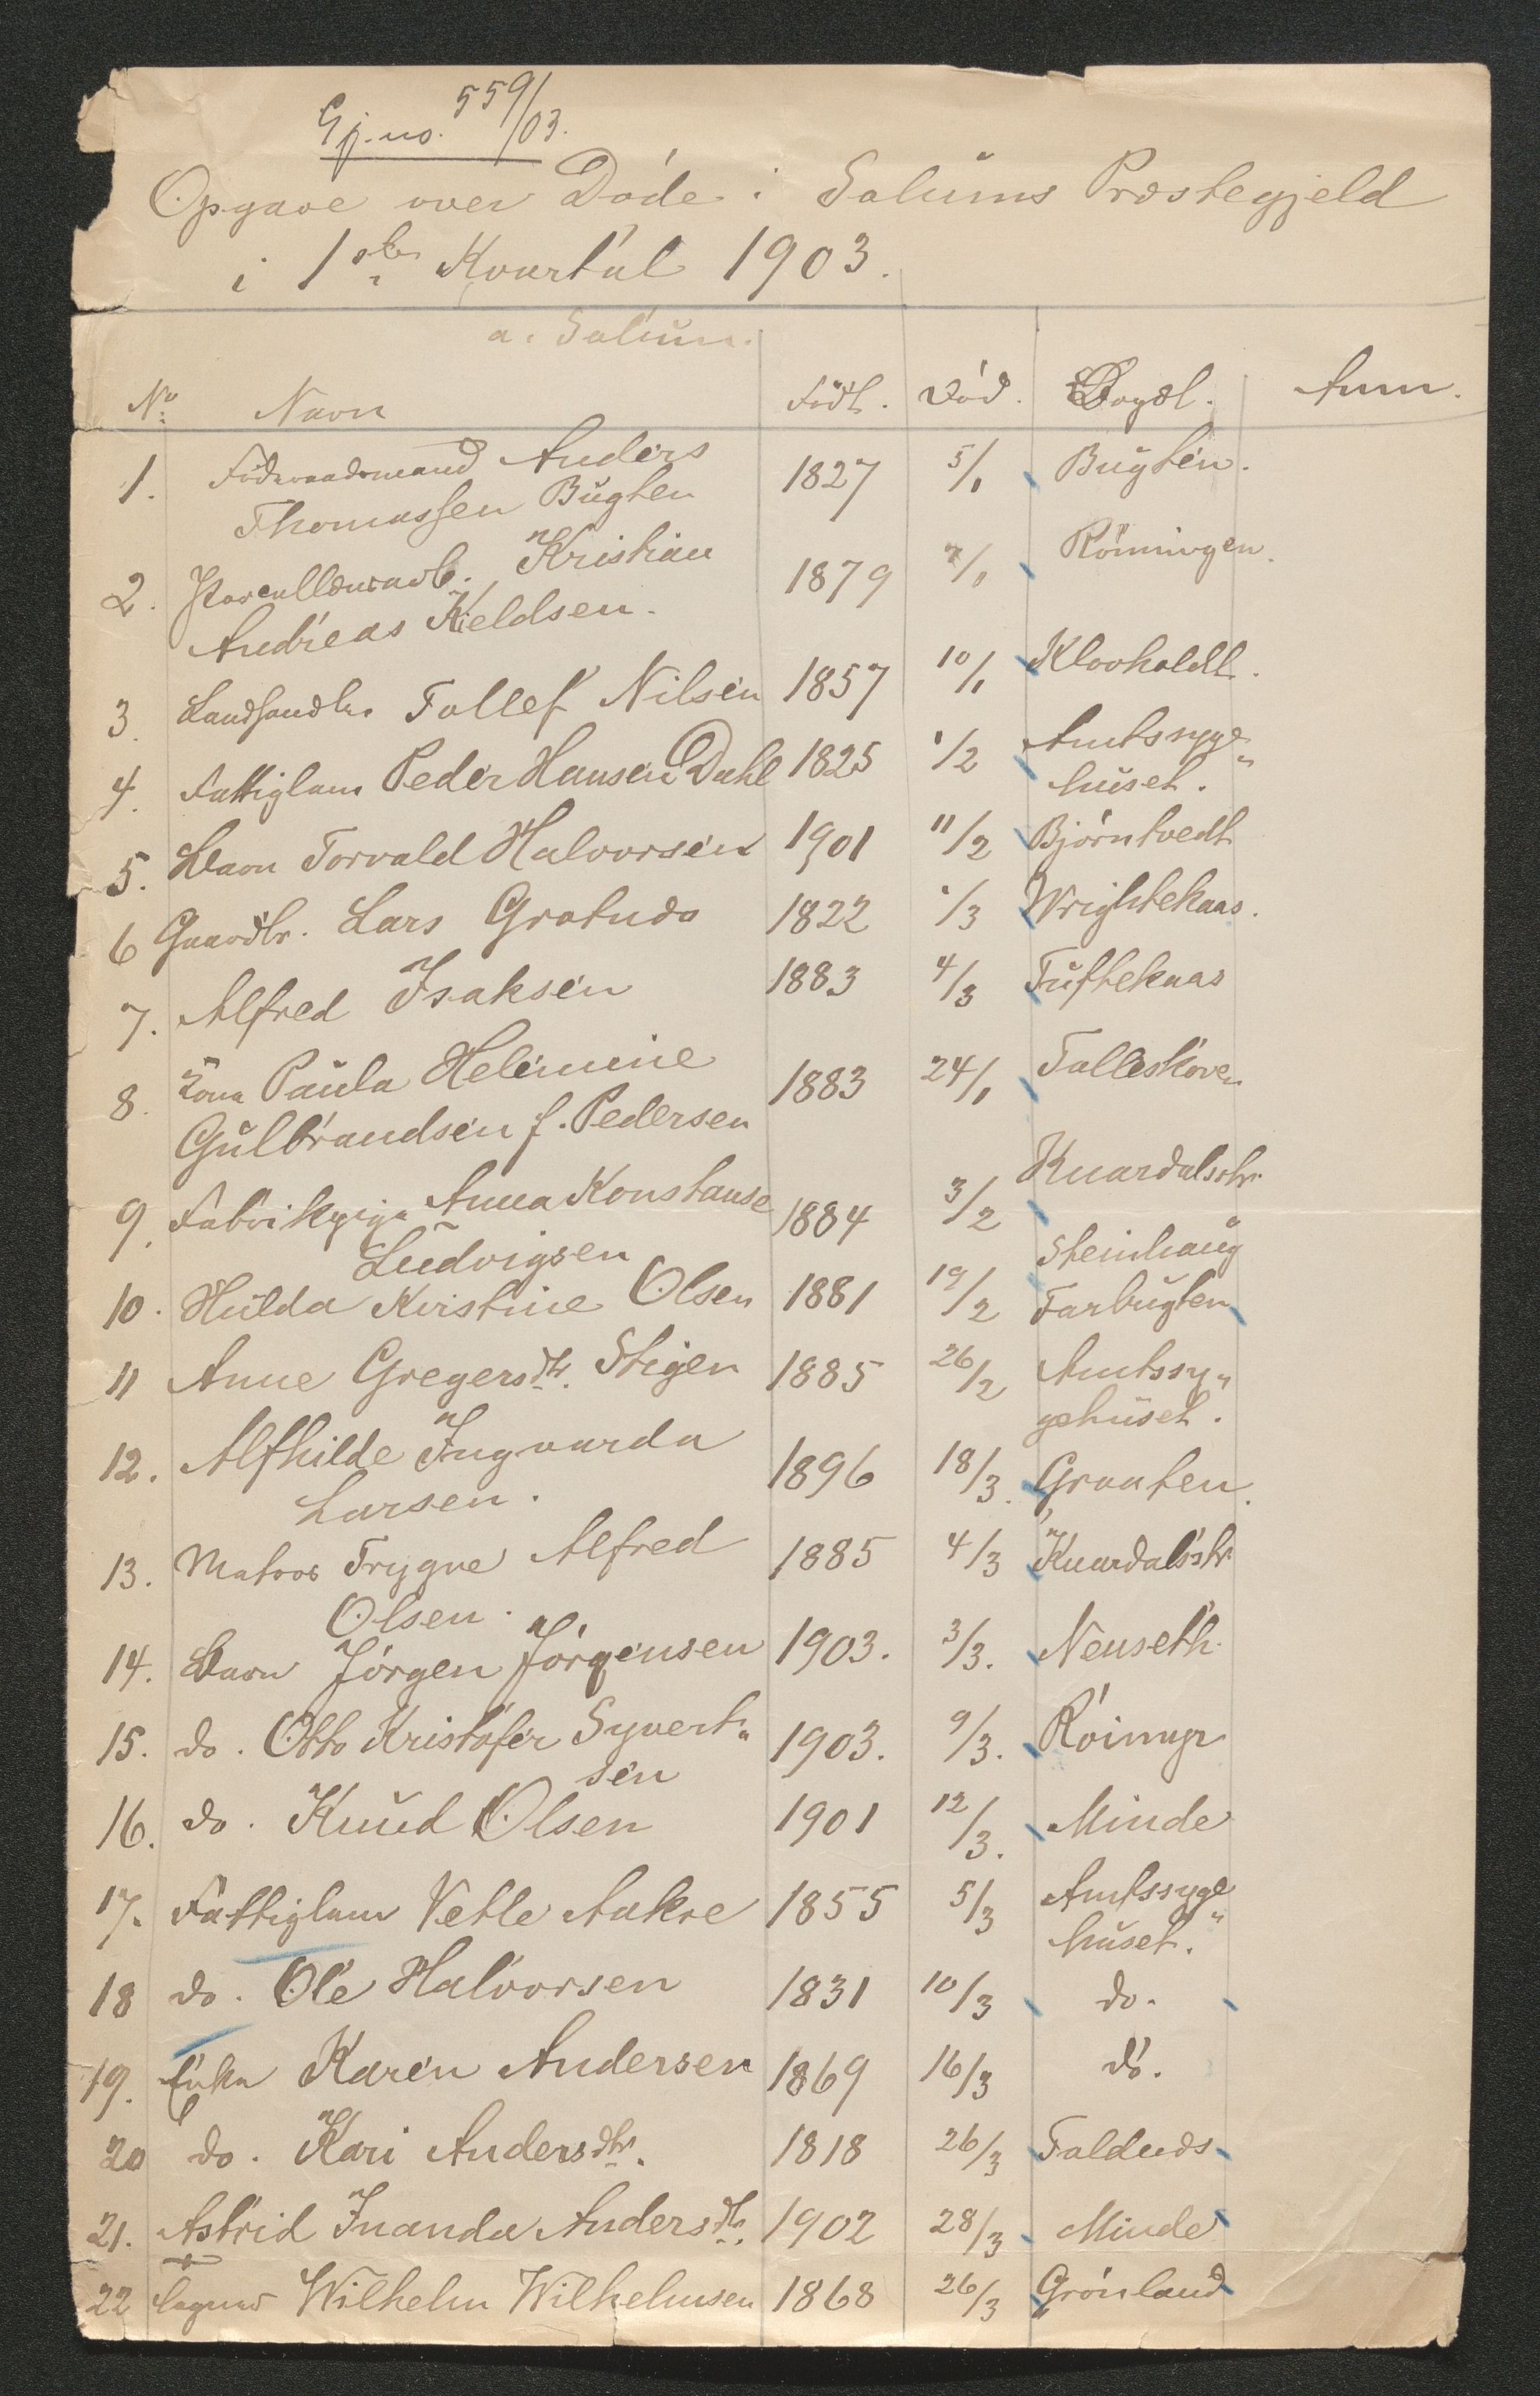 Gj. no. 559/03.
Opgave over Døde i Solums Præstegjeld
i 1ste Kvartal 1903.
a. Solum.
No Navn Født. Død. Bopæl. Anm.
1. Føderaadsmand Anders
Thomassen Bugten 1827 5/1 Bugten.
2. Porcellænsarb. Kristian
Andreas Kieldsen. 1879 7/1 Rönningen.
3. Landhandler Tollef Nilsen 1857 10/1 Klovholdt.
4. Fattiglem Peder Hansen Dahl 1825 1/2 Amtssyge„
huset.
5. Barn Torvald Halvorsen 1901 11/2 Bjørntvedt
6 Gaardbr. Lars Grotnæs 1822 1/3 Wrightekaas.
7. Alfred Isaksen 1883 4/3 Tuftekaas
8. Kona Paula Helimine
Gulbrandsen f. Pedersen 1883 24/1 Folleskoven
9. Fabrikpige Anna Konstanse
Ludvigsen 1884 3/2 Knardalsstr.
Steinhaug
10. Hulda Kristine Olsen 1881 19/2 Torbugten
11 Anne Gregersdtr. Stigen 1885 26/2 Amtssy„
gehuset.
12. Alfhilde Ingvarda
Larsen. 1896 18/3. Graaten.
13. Matros Trygve Alfred
Olsen. 1885 4/3 Knardalsstr.
14. Barn Jørgen Jørgensen 1903. 3/3. Nenseth.
15. do. Otto Kristofer Syvert„
sen 1903. 9/3. Röimyr
16. do. Knud Olsen 1901 12/3. Minde
17. Fattiglem Vetle Aakre 1855 5/3 Amtssyge„
huset.
18 do. Ole Halvorsen 1831 10/3 do.
19. Enke Karen Andersen 1869 16/3 do.
20 do. Kari Andersdtr. 1818 26/3 Foldnæs
21. Astrid Inanda Andersdtr. 1902 28/3 Minde
22 Wilhelm Wilhelmsen 1868 26/3 Grönland